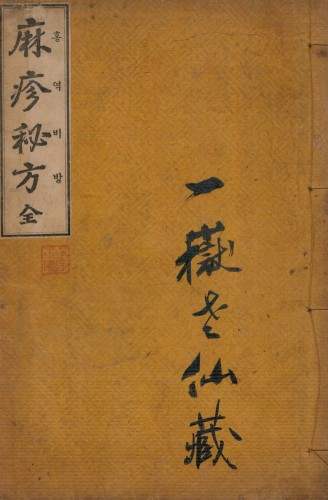 麻疹秘方 全
홍역비방
一嶽老仙藏